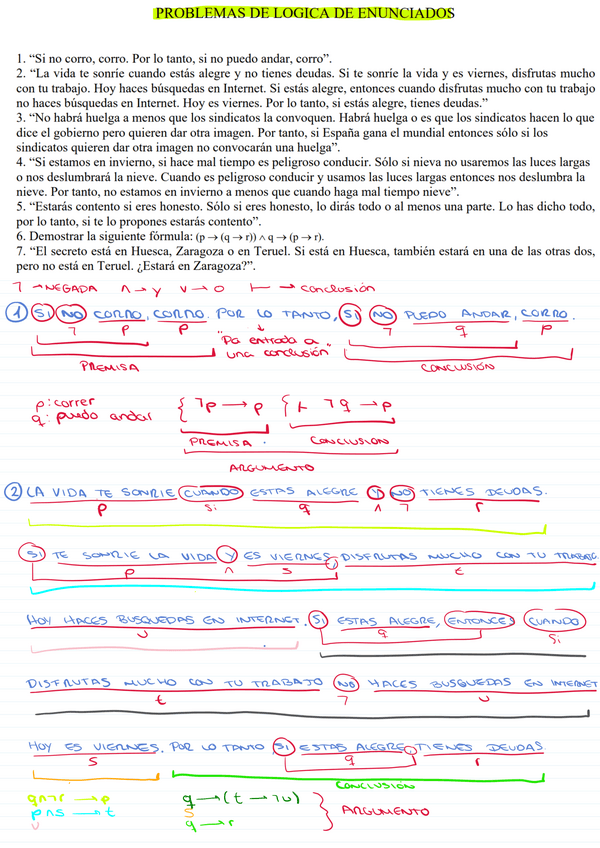 PROBLEMAS DE LOGICA DE ENUNCIADOS
1. “Si no corro, corro. Por lo tanto, si no puedo andar, corro”.
2. “La vida te sonríe cuando estás alegre y no tienes deudas. Si te sonríe la vida y es viernes, disfrutas mucho
con tu trabajo. Hoy haces búsquedas en Internet. Si estás alegre, entonces cuando disfrutas mucho con tu trabajo
no haces búsquedas en Internet. Hoy es viernes. Por lo tanto, si estás alegre, tienes deudas.”
3. “No habrá huelga a menos que los sindicatos la convoquen. Habrá huelga o es que los sindicatos hacen lo que
dice el gobierno pero quieren dar otra imagen. Por tanto, si España gana el mundial entonces sólo si los
sindicatos quieren dar otra imagen no convocarán una huelga”.
4. “Si estamos en invierno, si hace mal tiempo es peligroso conducir. Sólo si nieva no usaremos las luces largas
o nos deslumbrará la nieve. Cuando es peligroso conducir y usamos las luces largas entonces nos deslumbra la
nieve. Por tanto, no estamos en invierno a menos que cuando haga mal tiempo nieve”.
5. “Estarás contento si eres honesto. Sólo si eres honesto, lo dirás todo o al menos una parte. Lo has dicho todo,
por lo tanto, si te lo propones estarás contento”.
6. Demostrar la siguiente fórmula: (p → (q → r)) ∧ q → (p → r).
7. “El secreto está en Huesca, Zaragoza o en Teruel. Si está en Huesca, también estará en una de las otras dos,
pero no está en Teruel. ¿Estará en Zaragoza?”.
¬ → NEGADA ∧ → y ∨ → o ⊢ → conclusión
① SI NO CORRO, CORRO. POR LO TANTO, SI NO PUEDO ANDAR, CORRO.
¬ p p ↓ ¬ q p
"Da entrada a
una conclusión"
PREMISA CONCLUSIÓN
p: correr { ¬p → p { ⊢ ¬q → p
q: puedo andar
PREMISA. CONCLUSION
ARGUMENTO
② LA VIDA TE SONRIE CUANDO ESTAS ALEGRE Y NO TIENES DEUDAS.
p Si q ∧ ¬ r
SI TE SONRIE LA VIDA Y ES VIERNES, DISFRUTAS MUCHO CON TU TRABAJO.
p ∧ s t
HOY HACES BUSQUEDAS EN INTERNET. SI ESTAS ALEGRE, ENTONCES CUANDO
u q Si
DISFRUTAS MUCHO CON TU TRABAJO NO HACES BUSQUEDAS EN INTERNET
t ¬ u
HOY ES VIERNES. POR LO TANTO SI ESTAS ALEGRE, TIENES DEUDAS.
s q r
CONCLUSIÓN
q∧¬r → p q → (t → ¬u)
p∧s → t s ARGUMENTO
u q → r